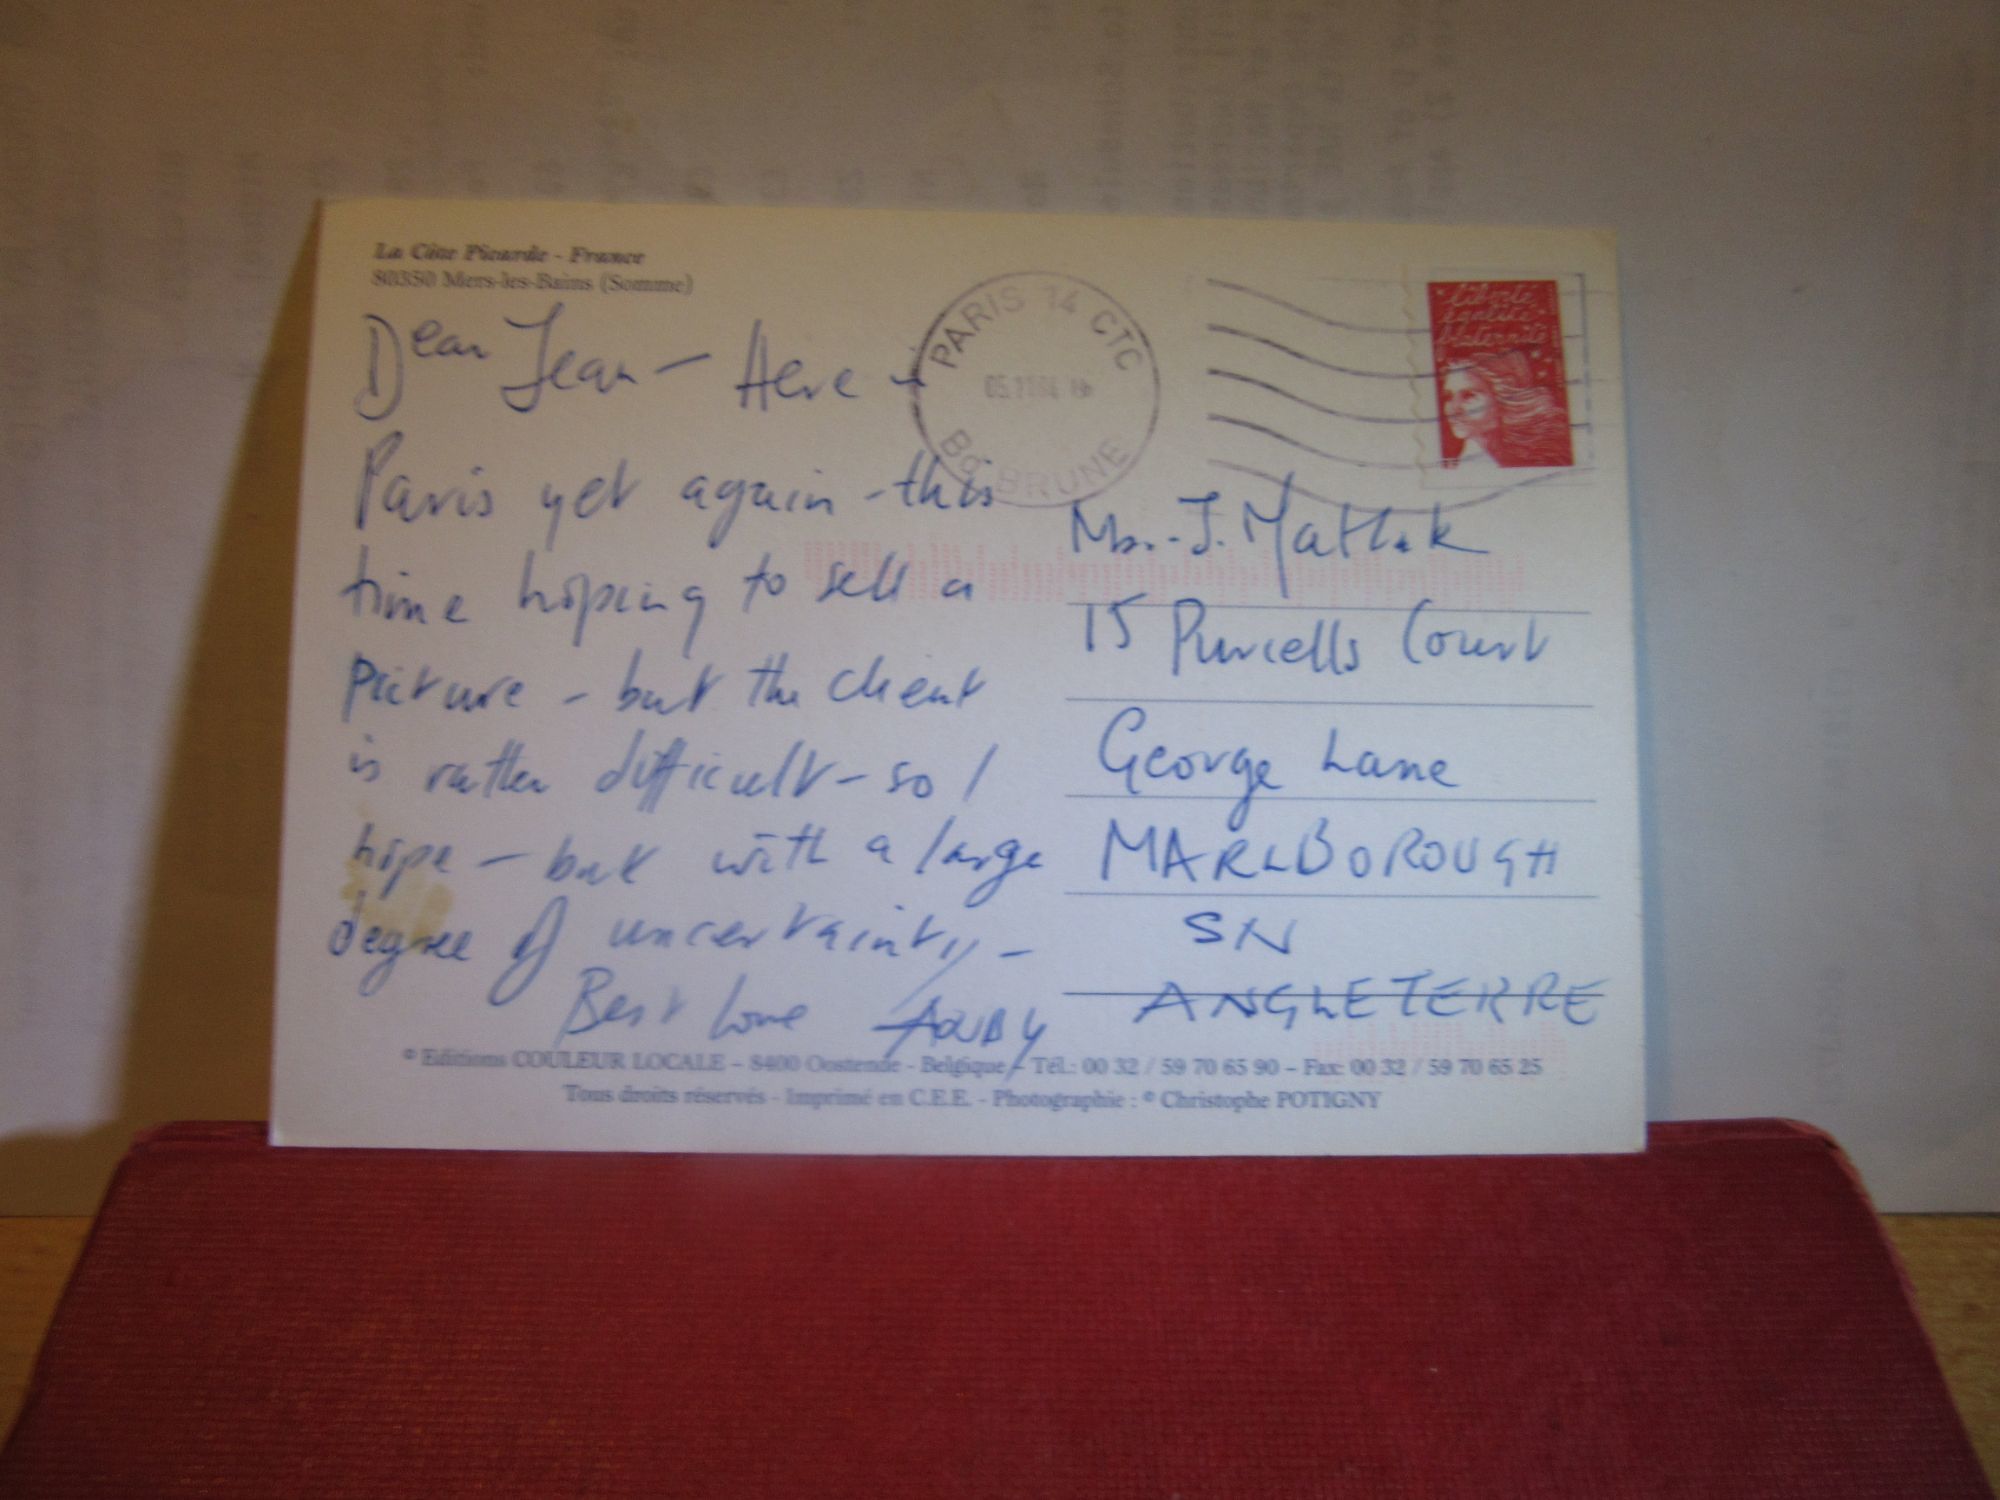 La Côte Picarde - France
80350 Mers-les-Bains (Somme)
Dear Jean - Here in
Paris yet again - this
time hoping to sell a
picture - but the client
is rather difficult - so I
hope - but with a large
degree of uncertainty -
Best Love
PARIS 14 CTC
Bd BRUNE
liberté
égalité
fraternité
J.
15 Purcells Court
George Lane
MARLBOROUGH
SN
ANGLETERRE
© Editions COULEUR LOCALE - 8400 Oostende - Belgique - Tél.: 00 32 / 59 70 65 90 - Fax: 00 32 / 59 70 65 25
Tous droits réservés - Imprimé en C.E.E. - Photographie : © Christophe POTIGNY